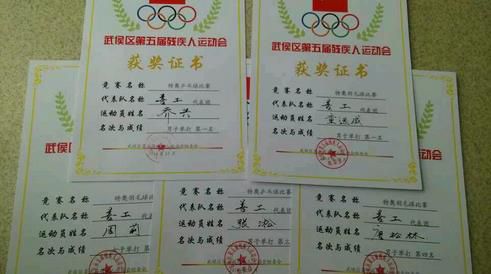 武侯区第五届残疾人运动会
获奖证书
竞赛名称 特奥乒乓球比赛
代表队名称 善工 代表团
运动员姓名 乔兴
名次与成绩 男子单打 第一名
武侯区第五届残疾人运动会
获奖证书
竞赛名称 特奥羽毛球比赛
代表队名称 善工 代表团
运动员姓名
名次与成绩 男子单打 第一名
竞赛名称 特奥羽毛球比赛
善工
运动员姓名 周莉
名次与成绩 女子单打 第
特奥乒乓球比赛
善工 代表团
运动员姓名 张凇
名次与成绩 男子单打 第
特奥羽毛球比赛
善工 代表团
运动员姓名 松林
名次与成绩 男子单打 第四名